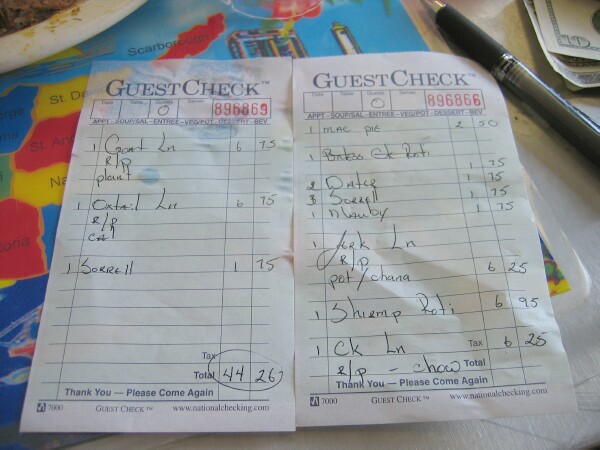 Scarborough
St. D
St. An
Na
toria
GUESTCHECK™
Date Table Guests Server
0 896869
APPT-SOUP/SAL-ENTREE-VEG/POT-DESSERT-BEV
1 Goat Ln 6 75
R/P
plant
1 Oxtail Ln 6 75
R/P
1 Sorrell 1 75
Tax
Total 44 26
Thank You — Please Come Again
7000 GUEST CHECK™ www.nationalchecking.com
GUESTCHECK™
Date Table Guests Server
0 896866
APPT-SOUP/SAL-ENTREE-VEG/POT-DESSERT-BEV
1 mac pie 2 50
1 Bnless Ck Roti
1 75
2 Water 1 75
Sorrell 1 75
1 mauby 1 75
1 Jerk Ln
R/P
pot/chana 6 25
1 Shrimp Roti 6 95
1 Ck Ln Tax 6 25
R/P - chow Total
Thank You — Please Come Again
7000 GUEST CHECK™ www.nationalchecking.com